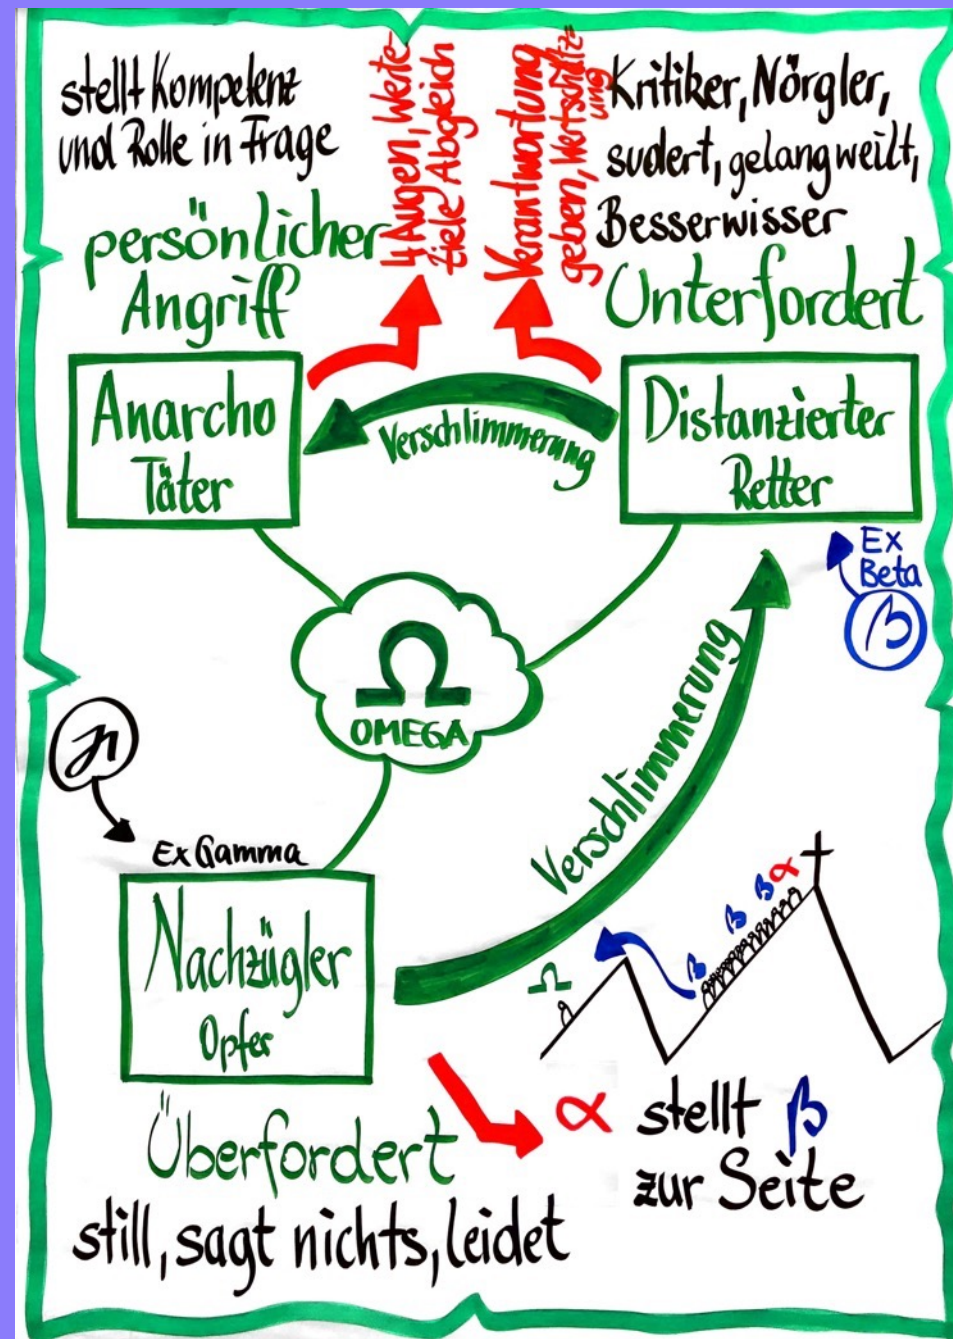 stellt Kompetenz
und Rolle in Frage
persönlicher
Angriff
4 Augen, Werte-
Ziele Abgleich
Verantwortung
geben, Wertschätz=
ung
Kritiker, Nörgler,
sudert, gelangweilt,
Besserwisser
Unterfordert
Anarcho
Täter
Verschlimmerung
Distanzierter
Retter
Ex
Beta
β
Ω
OMEGA
Ex Gamma
Verschlimmerung
Nachzügler
Opfer
Ω
β
β
β α
Überfordert
still, sagt nichts, leidet
α stellt β
zur Seite